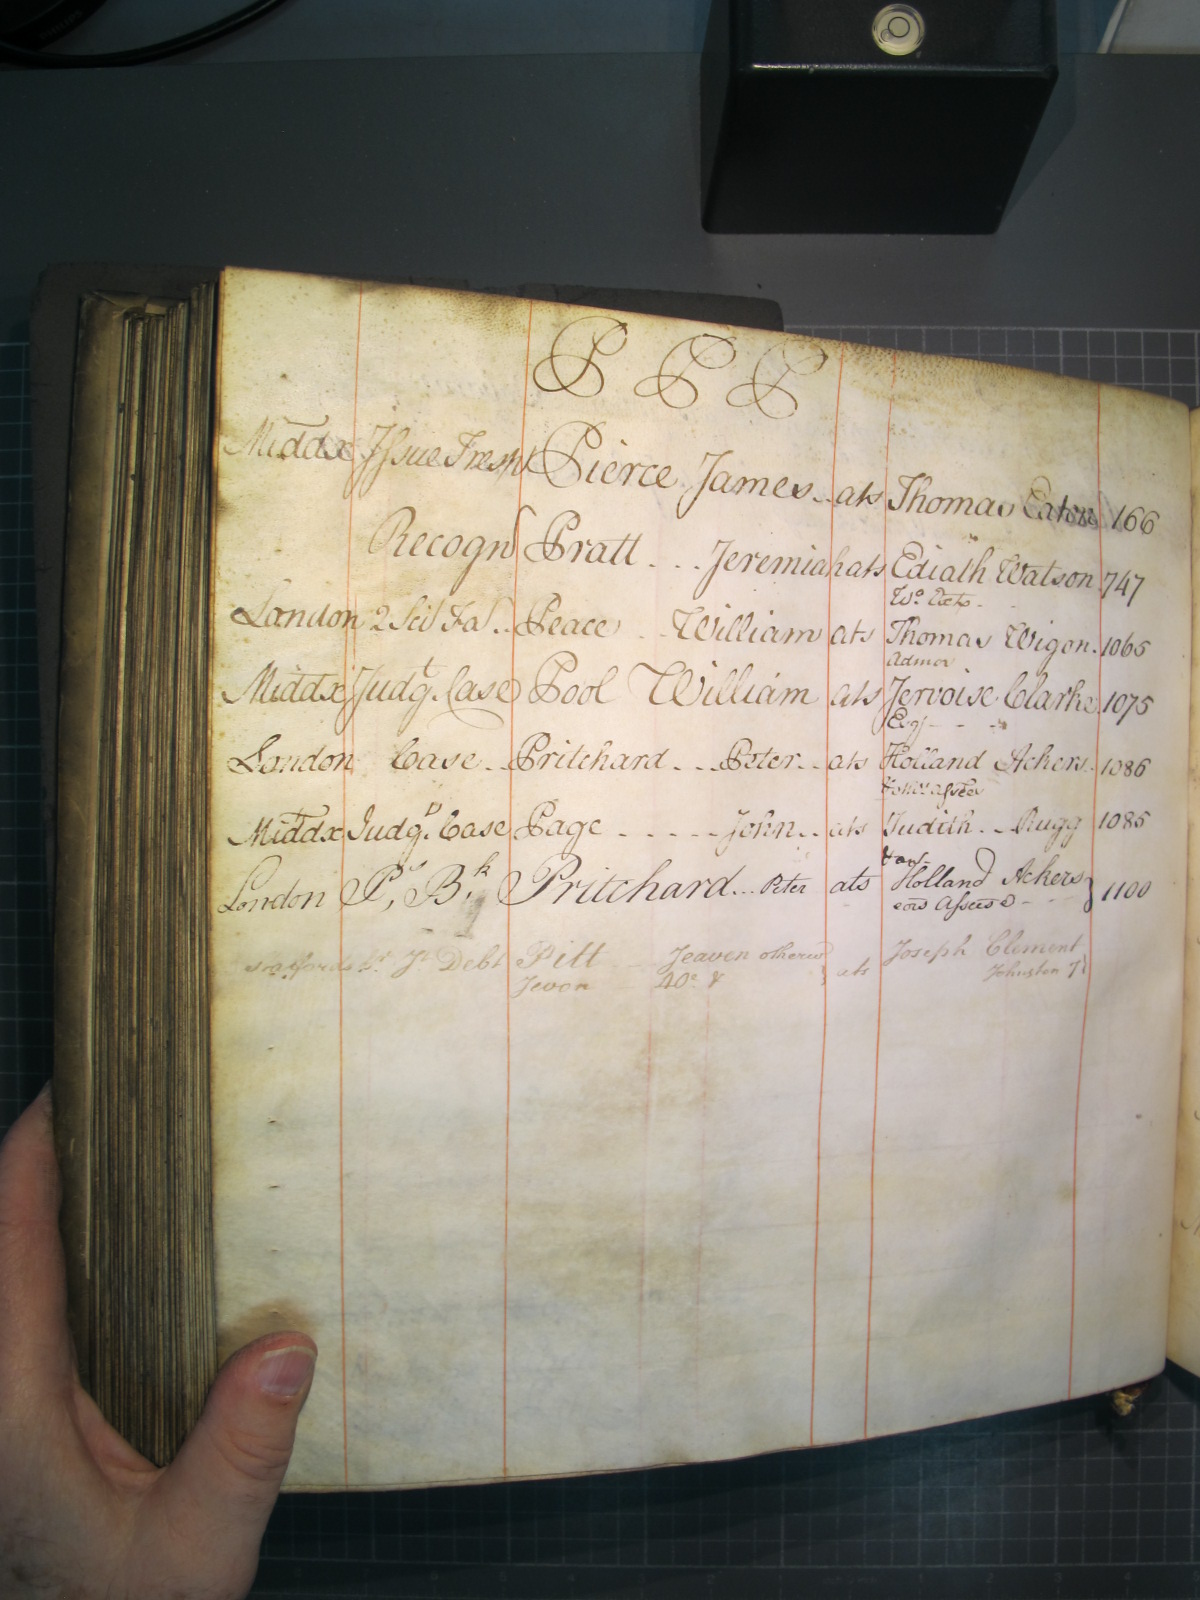 P P P
Middx Issue Fresh Pierce James .. ats Thomas Eaton 166
Recogn Pratt . . . Jeremiah ats Ediath Watson 747
Wo.
London 2 Sci Fa .. Peace . . William ats Thomas Wigon. 1065
Admor
Middx Judgt. Case Pool William ats Jervoise Clarke 1075
Esqr - - -
London Case .. Pritchard . . . Peter .. ats Holland Ackers. 1086
Assees
Middx Judgt. Case Page - - - - - John .. ats Judith .. Rugg 1085
& ors
London Ps. Bk. Pritchard ... Peter ats Holland Ackers 1100
Assees
Debt Pitt Jeaven otherw ats Joseph Clement
Jevon 40s & Johnston